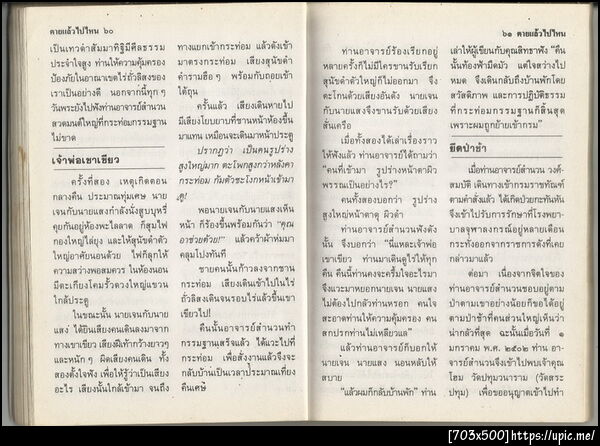 ตายแล้วไปไหน ๖๐
เป็นเทวดาสัมมาทิฐิมีศีลธรรม
ประจำใจสูง ท่านให้ความคุ้มครอง
ป้องภัยในอาณาเขตไร่ถั่วลิสงของ
เราเป็นอย่างดี นอกจากนี้ทุก ๆ
วันพระยังไปฟังท่านอาจารย์สำนวน
สวดมนต์ใหญ่ที่กระท่อมกรรมฐาน
ไม่ขาด
เจ้าพ่อเขาเขียว
ครั้งที่สอง เหตุเกิดตอน
กลางคืน ประมาณทุ่มเศษ นาย
เจนกับนายแสงกำลังนั่งสูบบุหรี่
คุยกันอยู่ห้องพะไลลาด ก็สุมไฟ
กองใหญ่ไล่ยุง และให้สุนัขดำตัว
ใหญ่อาศัยนอนด้วย ไฟก็ลุกให้
ความสว่างพอสมควร ในห้องนอน
มีตะเกียงโคมรั้วดวงใหญ่แขวน
ใกล้ประตู
ในขณะนั้น นายเจนกับนาย
แสง ได้ยินเสียงคนเดินลงมาจาก
ทางเขาเขียว เสียงฝีเท้าก้าวยาวๆ
และหนัก ๆ ผิดเสียงคนเดิน ทั้ง
สองตั้งใจฟัง เพื่อให้รู้ว่าเป็นเสียง
อะไร เสียงนั้นใกล้เข้ามา จนถึง
ทางแยกเข้ากระท่อม แล้วดังเข้า
มาตรงกระท่อม เสียงสุนัขดำ
คำรามฮือ ๆ พร้อมกับถอยเข้า
ใต้ถุน
ครั้นแล้ว เสียงเดินหายไป
มีเสียงโยบยาบที่ชานหน้าห้องขึ้น
มาแทน เหมือนจะเดินมาหน้าประตู
ปรากฏว่า เป็นคนรูปร่าง
สูงใหญ่มาก ตะโพกสูงกว่าหลังคา
กระท่อม ก้มตัวชะโงกหน้าเข้ามา
ดู!
พอนายเจนกับนายแสงเห็น
หน้า ก็ร้องขึ้นพร้อมกันว่า "คุณ
อาช่วยด้วย!" แล้วคว้าผ้าห่มมา
คลุมโปงทันที
ชายคนนั้นก้าวลงจากชาน
กระท่อม เสียงเดินเข้าไปในไร่
ถั่วลิสงเดินจนรอบไร่แล้วขึ้นเขา
เขียวไป!
คืนนั้นอาจารย์สำนวนทำ
กรรมฐานเสร็จแล้ว ได้แวะไปที่
กระท่อม เพื่อสั่งงานแล้วจึงจะ
กลับบ้านเป็นเวลาประมาณเที่ยง
คืนเศษ
๖๑ ตายแล้วไปไหน
ท่านอาจารย์ร้องเรียกอยู่
หลายครั้งก็ไม่มีใครขานรับเรียก
สุนัขดำตัวใหญ่ก็ไม่ออกมา จึง
ตะโกนด้วยเสียงอันดัง นายเจน
กับนายแสงจึงขานรับด้วยเสียง
สั่นเครือ
เมื่อทั้งสองได้เล่าเรื่องราว
ให้ฟังแล้ว ท่านอาจารย์ได้ถามว่า
"คนที่เข้ามา รูปร่างหน้าตาผิว
พรรณเป็นอย่างไร?"
คนทั้งสองบอกว่า รูปร่าง
สูงใหญ่หน้าคาดุ ผิวดำ
ท่านอาจารย์สำนวนฟังดัง
นั้น จึงบอกว่า "นี่แหละเจ้าพ่อ
เขาเขียว ท่านมาเดินดูไร่ให้ทุก
คืน คืนนี้ท่านคงจะครึ้มใจอะไรมา
จึงแวะมาหยอกนายเจน นายแสง
ไม่ต้องไปกลัวท่านหรอก คนใจ
สะอาดท่านให้ความคุ้มครอง คน
สกปรกท่านไม่เหลียวแล"
แล้วท่านอาจารย์ก็บอกให้
นายเจน นายแสง นอนหลับให้
สบาย
"แล้วผมก็กลับบ้านพัก" ท่าน
เล่าให้ผู้เขียนกับคุณสิทธาฟัง "คืน
นั้นท้องฟ้ามืดมัว แต่ใจสว่างไป
หมด จึงเดินกลับถึงบ้านพักโดย
สวัสดิภาพ และการปฏิบัติธรรม
ที่กระท่อมกรรมฐานก็สิ้นสุด
เพราะผมถูกย้ายเข้ากรม"
ยึดป่าช้า
เมื่อท่านอาจารย์สำนวน วงศ์-
สมบัติ เดินทางเข้ากรมราชทัณฑ์
ตามคำสั่งแล้ว ได้เกิดป่วยกะทันหัน
จึงเข้าไปรับการรักษาที่โรงพยา-
บาลจุฬาลงกรณ์อยู่หลายเดือน
กระทั่งออกจากราชการดังที่เคย
กล่าวมาแล้ว
ต่อมา เนื่องจากจิตของ
ท่านอาจารย์สำนวนชอบอยู่ตาม
ป่าตามเขาอย่างน้อยก็ขอได้อยู่
ตามป่าช้าที่คนส่วนใหญ่เห็นว่า
น่ากลัวที่สุด ฉะนั้นเมื่อวันที่ ๑
มกราคม พ.ศ. ๒๕๐๒ ท่าน อา-
จารย์สำนวนจึงเข้าไปพบเจ้าคุณ
โฮม วัดปทุมวนาราม (วัดสระ
ปทุม) เพื่อขออนุญาตเข้าไปทำ
[703x500]https://upic.me/